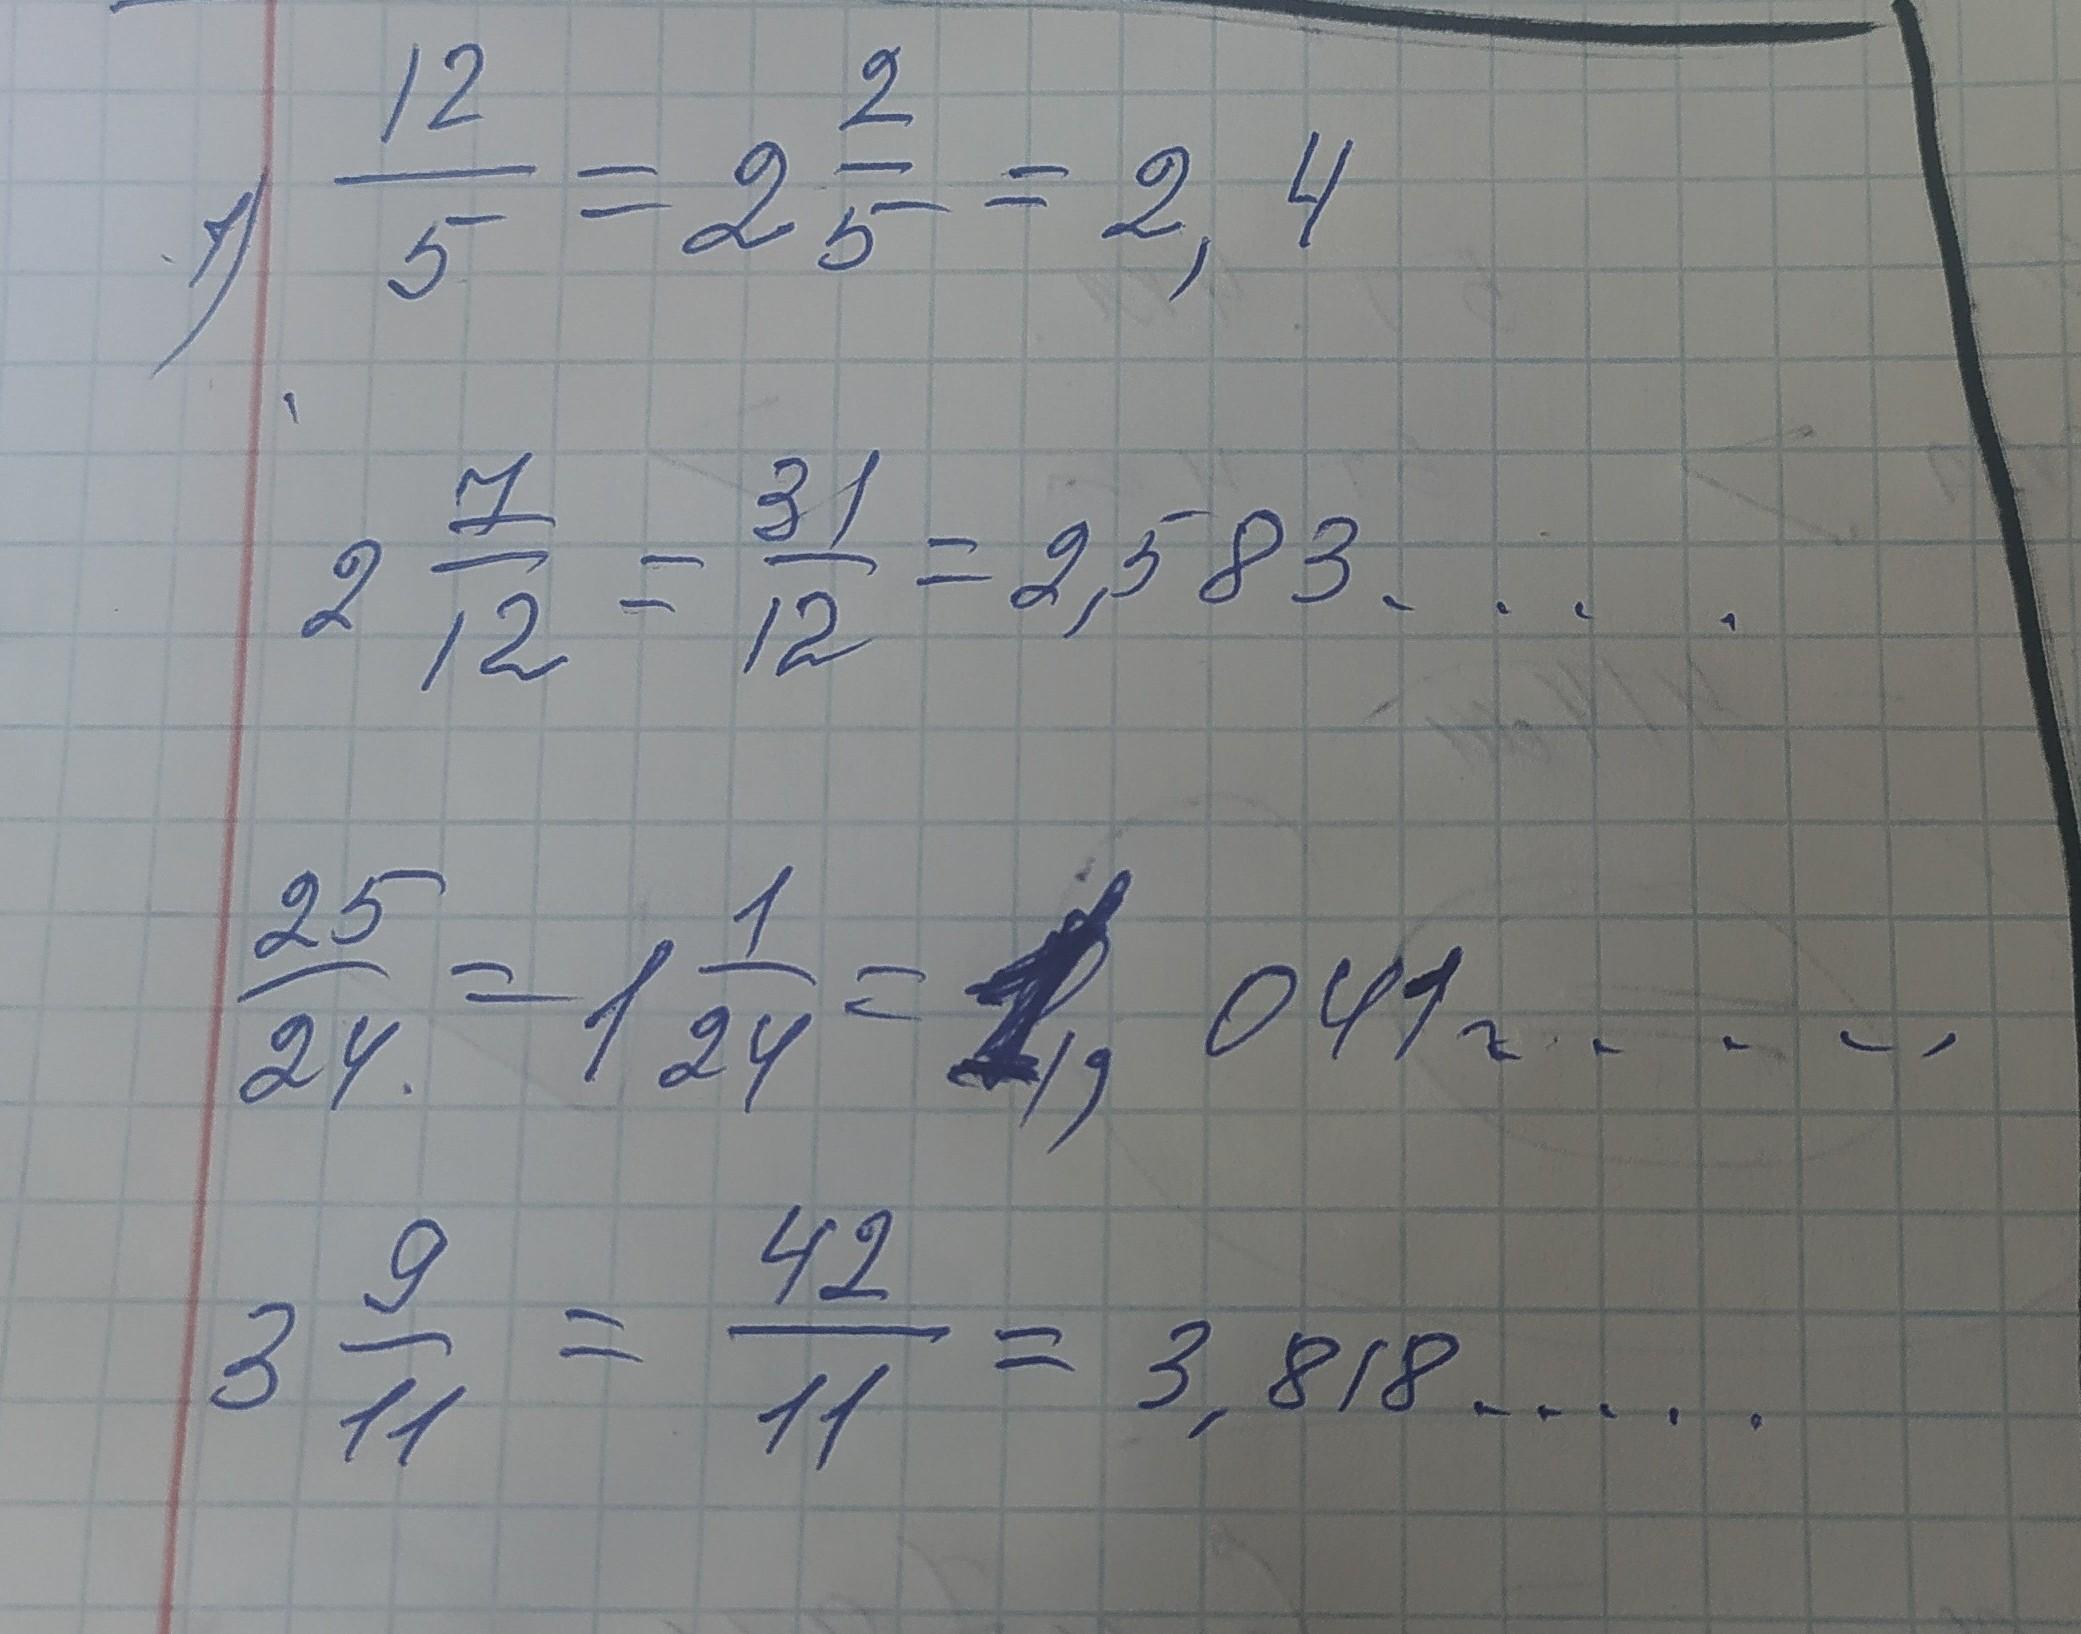 1) 12/5 = 2 2/5 = 2,4
2 7/12 = 31/12 = 2,583....
25/24 = 1 1/24 = 1,041.....
3 9/11 = 42/11 = 3,818.....